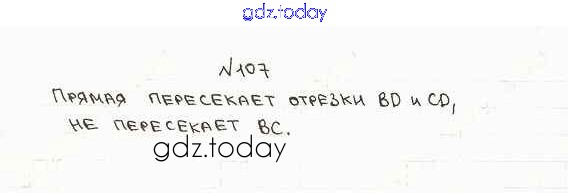 gdz.today
№107
ПРЯМАЯ ПЕРЕСЕКАЕТ ОТРЕЗКИ BD И CD,
НЕ ПЕРЕСЕКАЕТ BC.
gdz.today